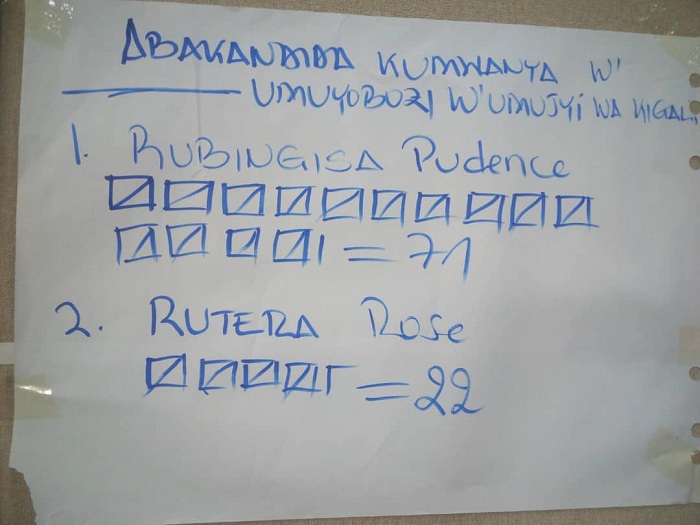 ABAKANDIDA KUMWANYA W'
UMUYOBOZI W'UMUJYI WA KIGALI
1. RUBINGISA Pudence
= 71
2. RUTERA Rose
= 22